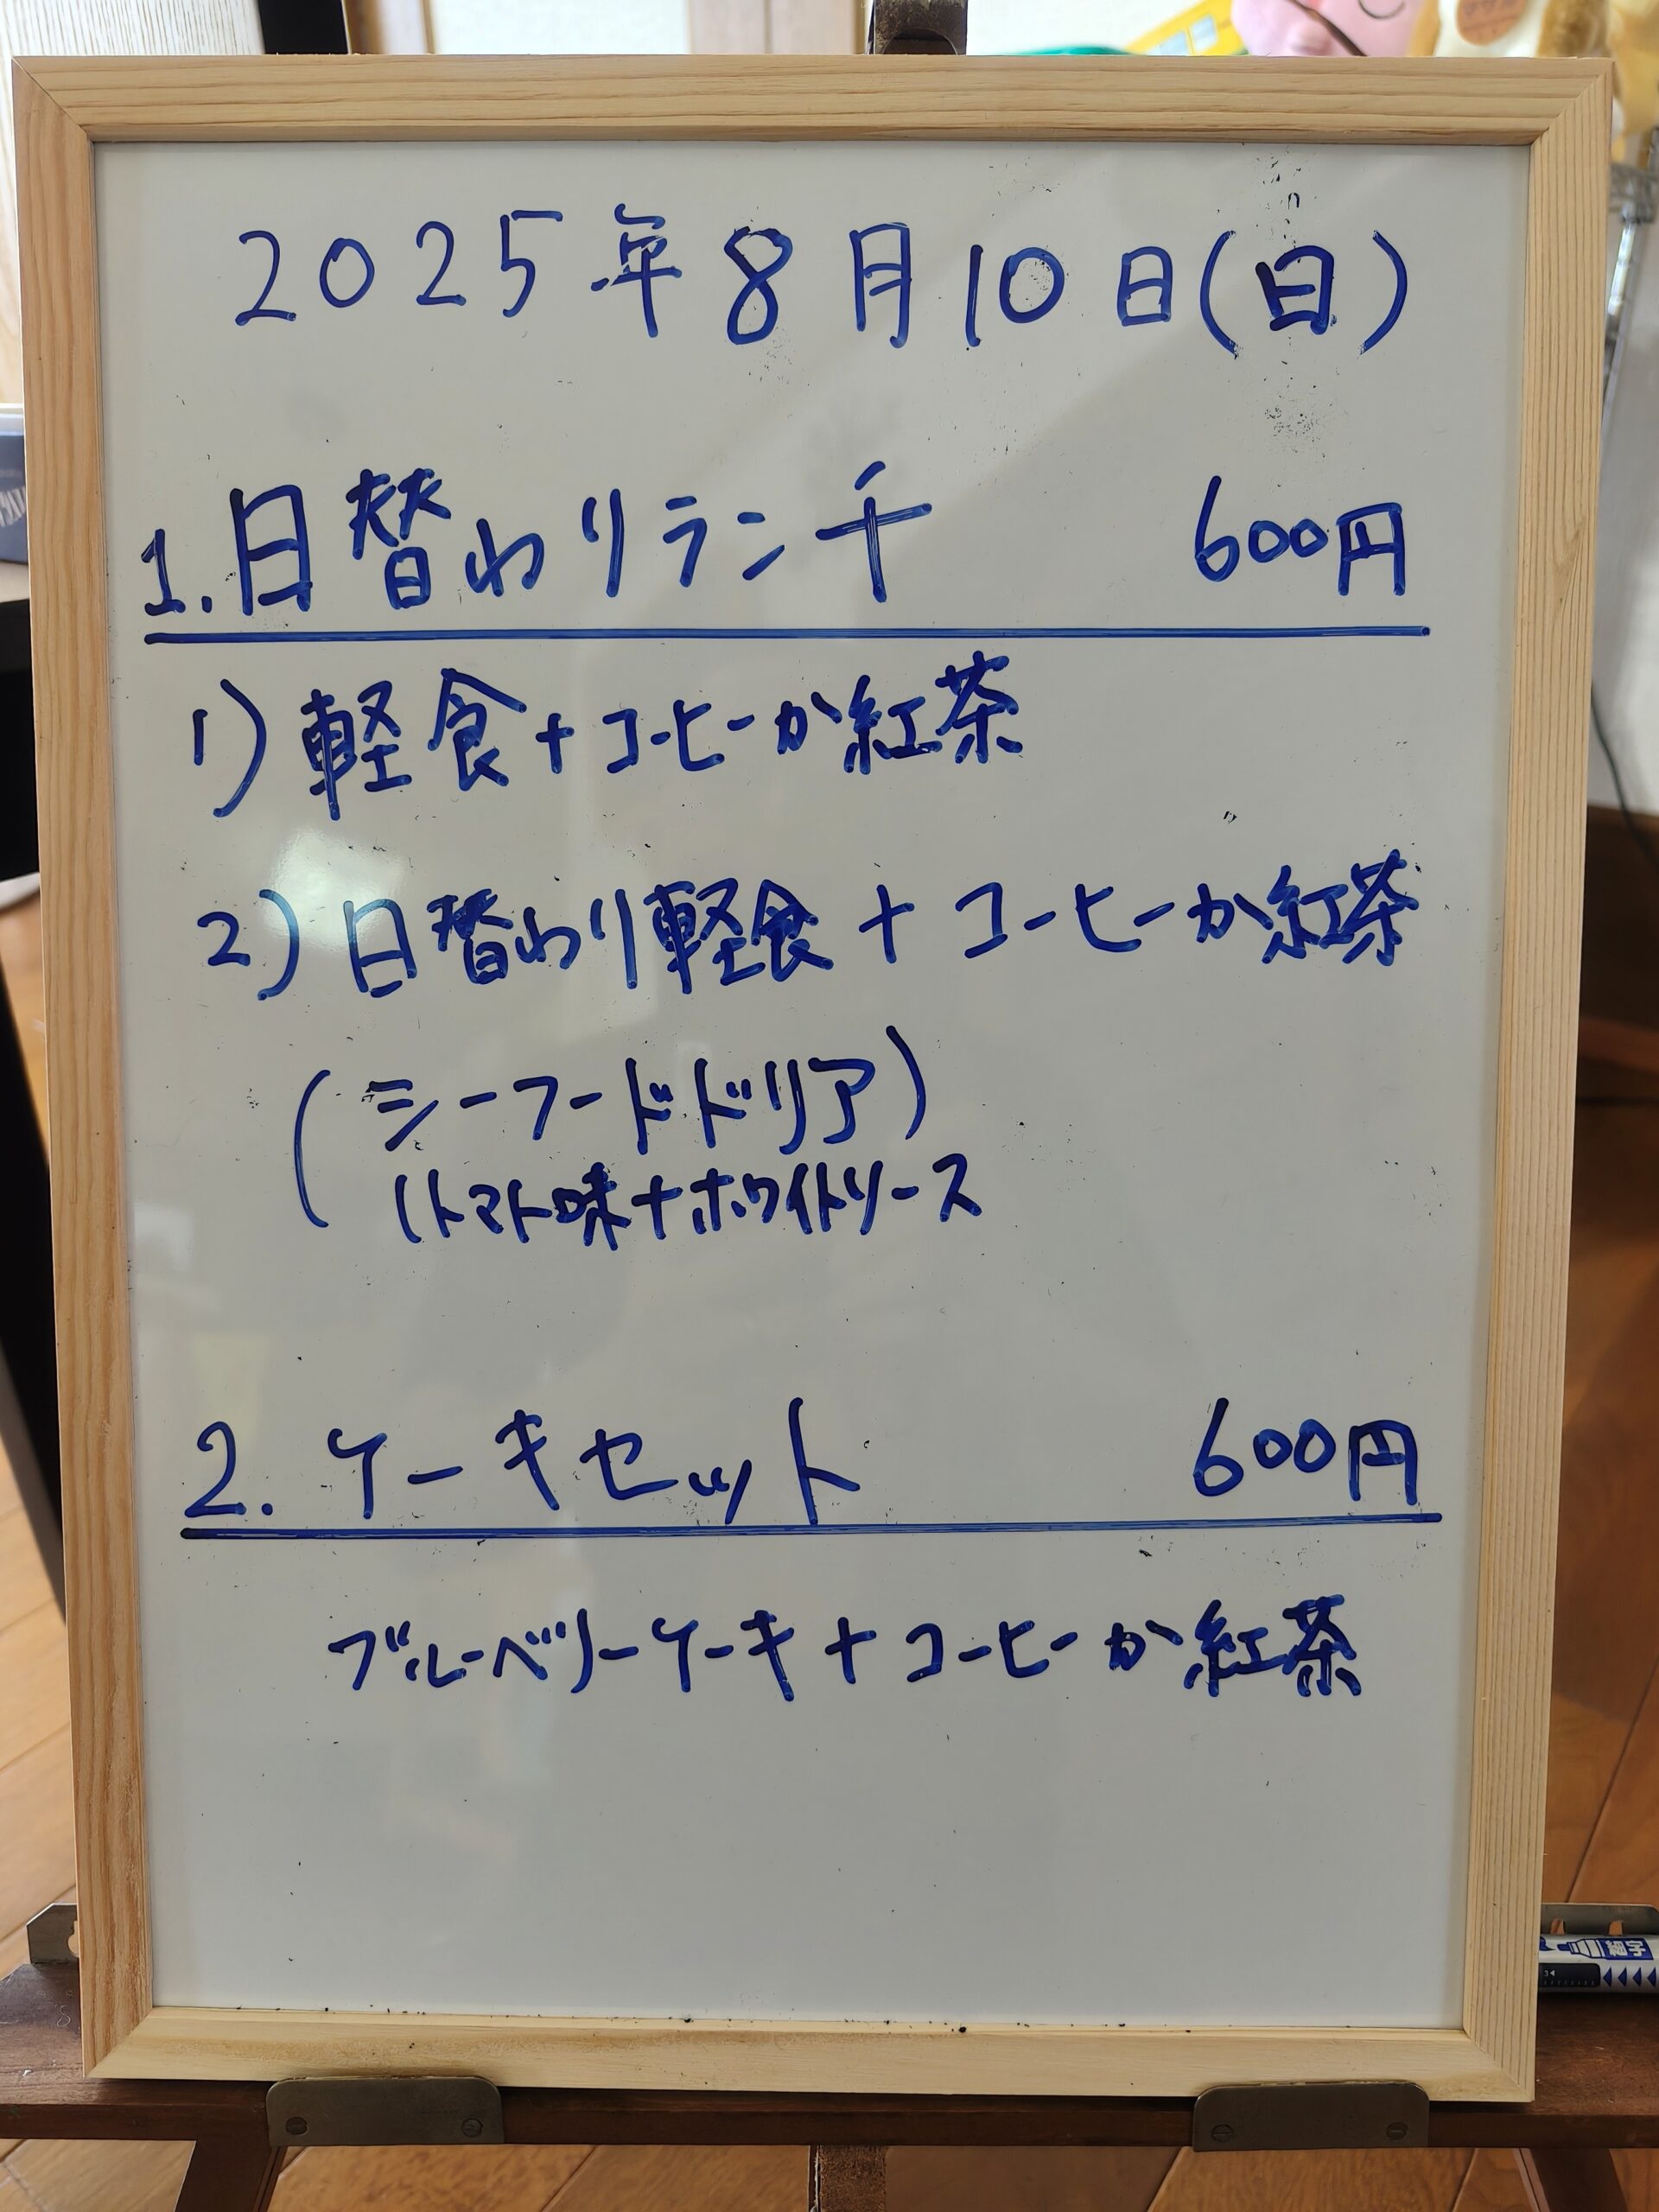 2025年8月10日(日)
1.日替わりランチ 600円
1)軽食+コーヒーか紅茶
2)日替わり軽食+コーヒーか紅茶
(シーフードドリア)
(トマト味+ホワイトソース
2.ケーキセット 600円
ブルーベリーケーキ+コーヒーか紅茶